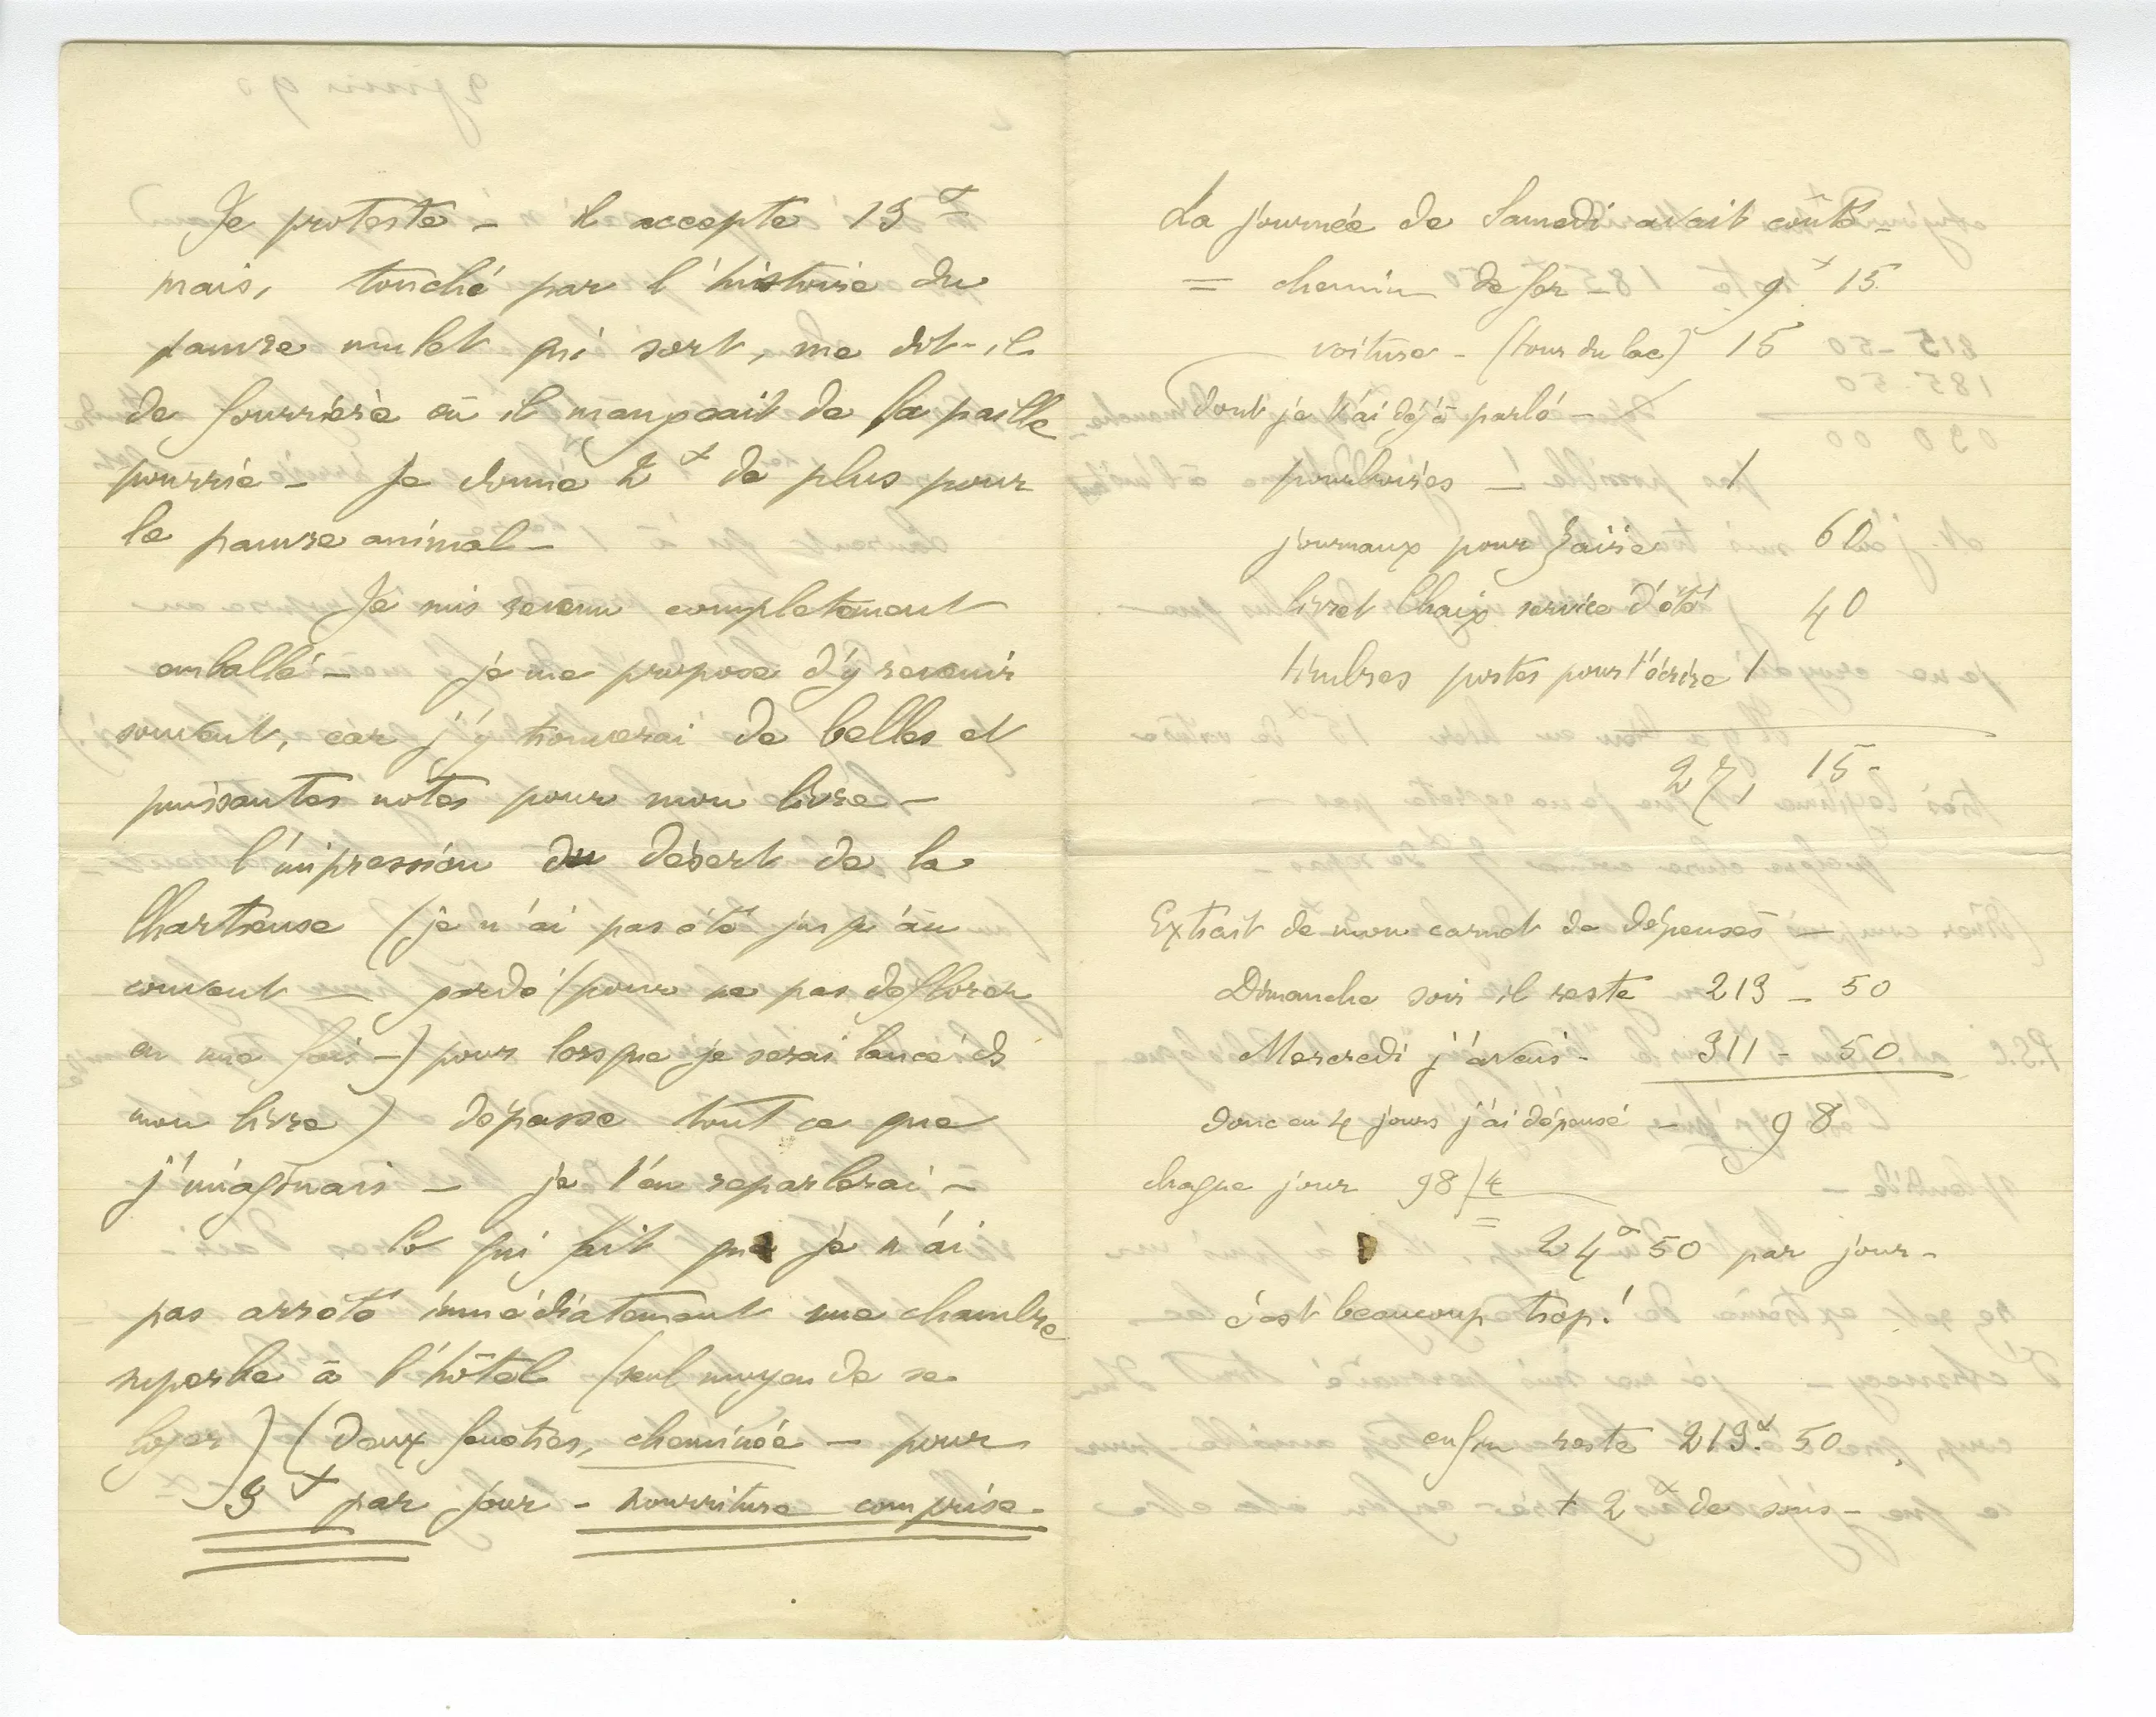 Je proteste – il accepte 13 f
mais, touché par l'histoire du
pauvre mulet qui sort, me dit-il
de fourrière où il mangeait de la paille
pourrie – Je donne 2 f de plus pour
le pauvre animal –
Je suis revenu complètement
emballé – je me propose d'y revenir
souvent, car j'y trouverai de belles et
puissantes notes pour mon livre –
l'impression du désert de la
Chartreuse (je n'ai pas été jusqu'au
couvent – gardé (pour ne pas déflorer
en une fois –) pour lorsque je serai lancé ds
mon livre) dépasse tout ce que
j'imaginais – je t'en reparlerai –
Ce qui fait que je n'ai
pas arrêté immédiatement une chambre
superbe à l'hôtel (seul moyen de se
loger) (Deux fenêtres, cheminée – pour
9 f par jour – nourriture comprise –
La journée de Samedi avait coûté –
= chemin de fer – 9 f 15
voiture – (tour du lac) 15
(dont je t'ai déjà parlé –
pourboires – 1
journaux pour Zaïre 60
livret Chaix service d'été 40
timbres postes pour t'écrire 1
27, 15 –
Extrait de mon carnet de dépenses –
Dimanche soir il reste 213 – 50
Mercredi j'avais – 311 – 50
donc en 4 jours j'ai dépensé – 98
chaque jour 98/4
= 24 f 50 par jour –
c'est beaucoup trop!
enfin reste 213 f. 50
+ 2 f de sous –